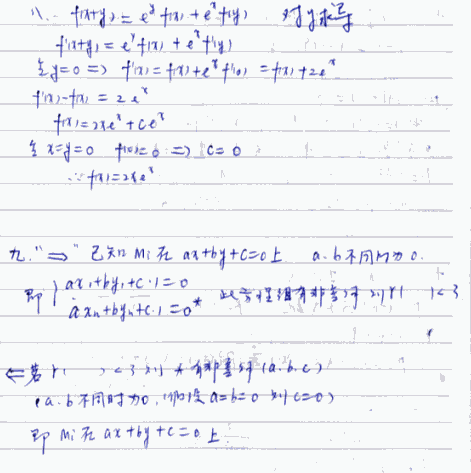 八、∵ f(x+y) = e^y f(x) + e^x f(y) 对y求导
f'(x+y) = e^y f(x) + e^x f'(y)
令 y=0 ⇒ f'(x) = f(x) + e^x f'(0) = f(x) + 2e^x
f'(x) - f(x) = 2e^x
f(x) = 2xe^x + Ce^x
令 x=y=0 f(0)=0 ⇒ C=0
∴ f(x)=2xe^x
九、"⇒" 已知 Mi 在 ax+by+c=0 上 a.b 不同时为 0.
即 { ax₁+by₁+c·1=0
axn+byn+c·1=0 此方程组有非零解 则 r( ) < 3
⇐ 若 r( ) < 3 则 有非零解 (a.b.c)
(a.b 不同时为0, 假设 a=b=0 则 c=0)
即 Mi 在 ax+by+c=0 上.